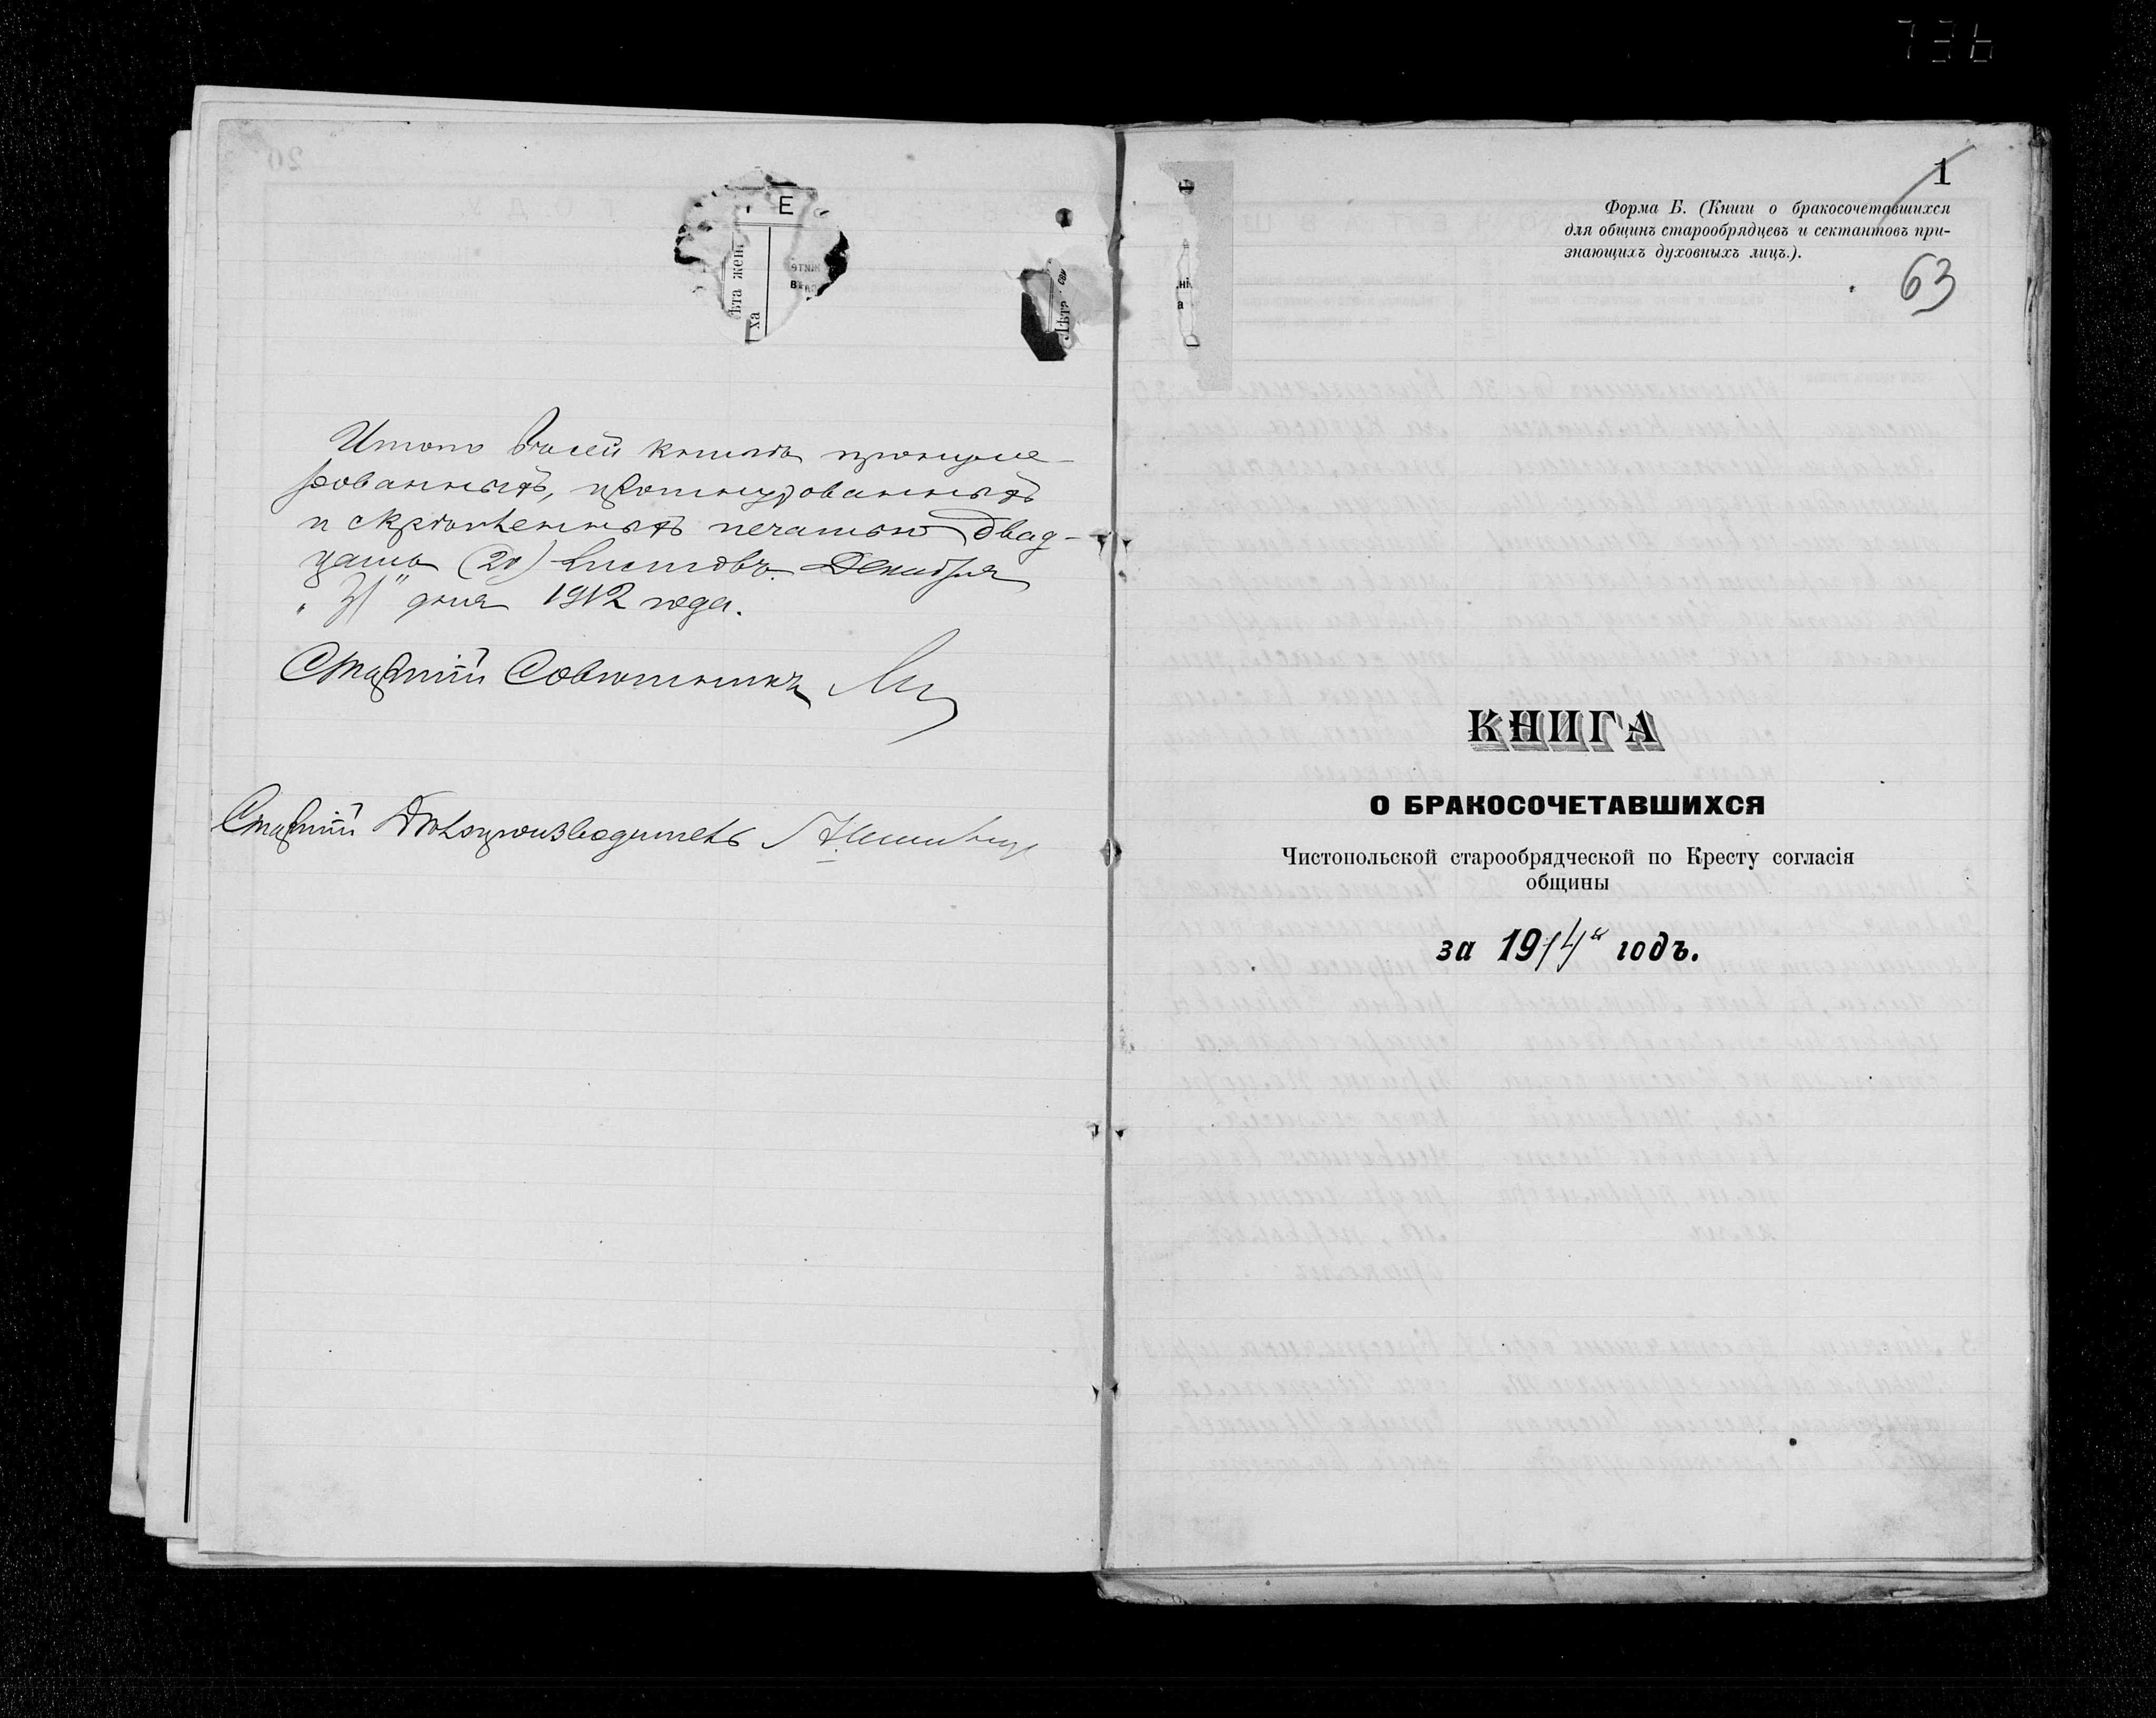 Итого въ сей книгѣ пронуме-
рованныхъ, прошнурованныхъ
и скрѣпленныхъ печатью двад-
цать (20) листовъ. Декабря
"31" дня 1912 года.
Старшій Совѣтникъ
Старшій Дѣлопроизводитель
1
Форма Б. (Книги о бракосочетавшихся
для общинъ старообрядцевъ и сектантовъ при-
знающихъ духовныхъ лицъ.).
63
КНИГА
О БРАКОСОЧЕТАВШИХСЯ
Чистопольской старообрядческой по Кресту согласія
общины
за 1914й годъ.